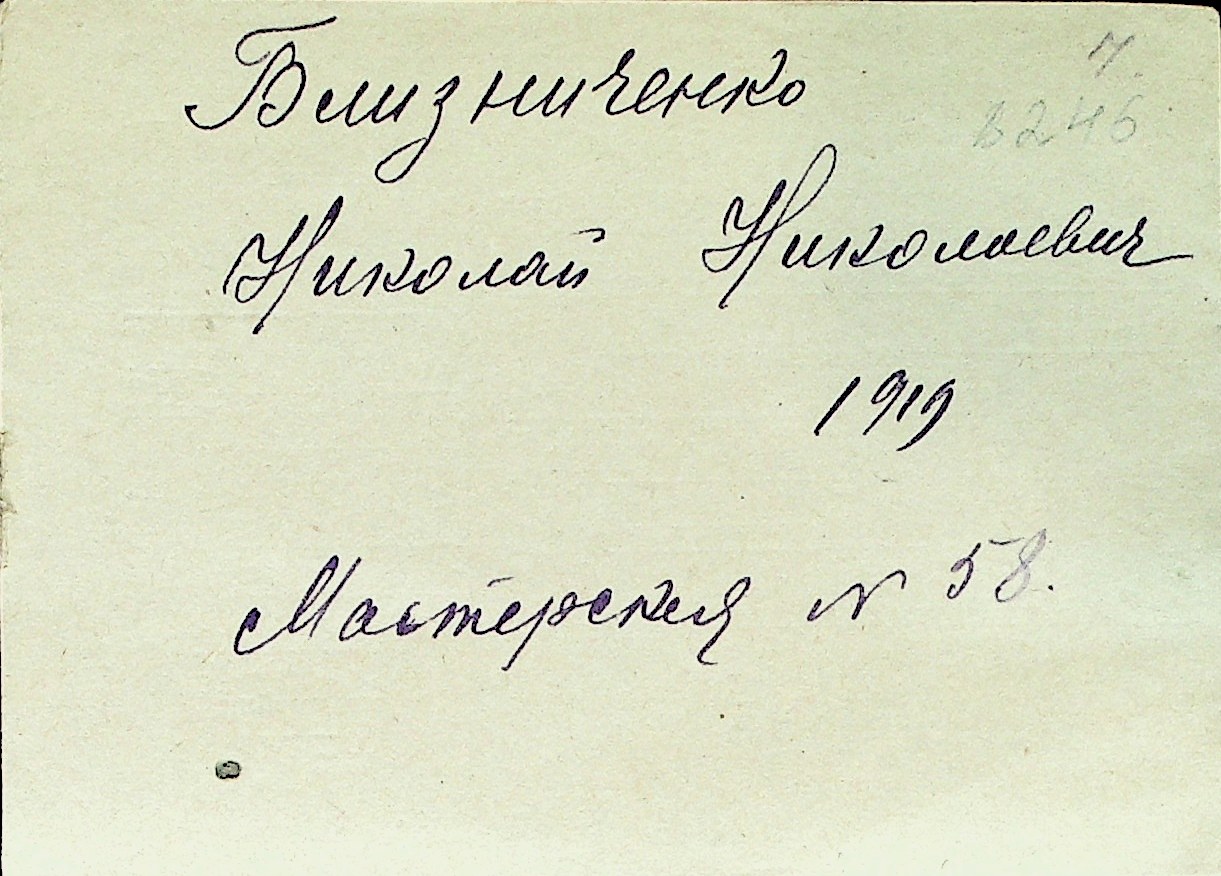 Близниченко
Николай Николаевич
1919
Мастерская № 58.